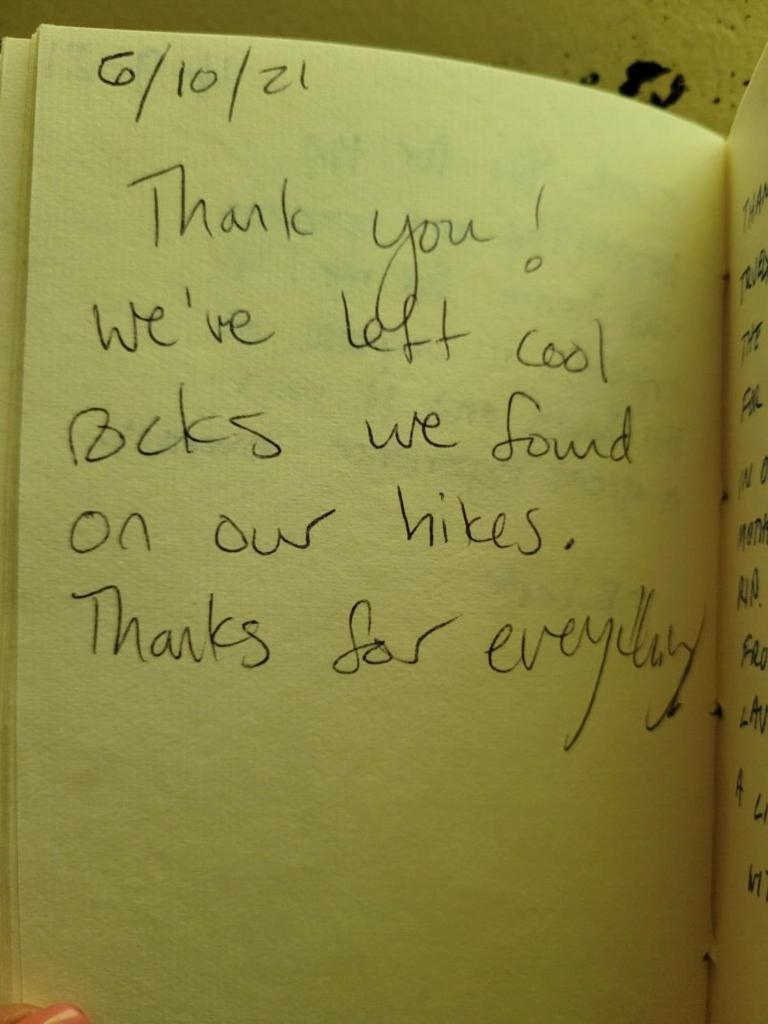 6/10/21
Thank you!
We've left cool
rocks we found
on our hikes.
Thanks for everything
THAN
THE
FOR
IN O
FRO
LAU
A LI
WI